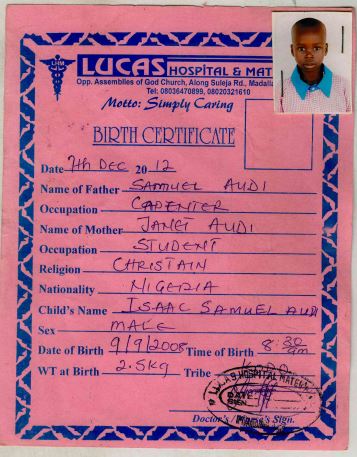 LHM
LUCAS HOSPITAL & MATE
Opp. Assemblies of God Church, Along Suleja Rd., Madalla
Tel: 08036470899, 08020321610
Motto: Simply Caring
BIRTH CERTIFICATE
Date 7th DEC 2012
Name of Father SAMUEL AUDI
Occupation CAPENTER
Name of Mother JANET AUDI
Occupation STUDENT
Religion CHRISTAIN
Nationality NIGERIA
Child's Name ISAAC SAMUEL AUDI
Sex MALE
Date of Birth 9/9/2008 Time of Birth 8:30 am
WT at Birth 2.5kg Tribe
LUCAS HOSPITAL MATERNITY
DATE
SIGN
Doctor's / Nurse's Sign.